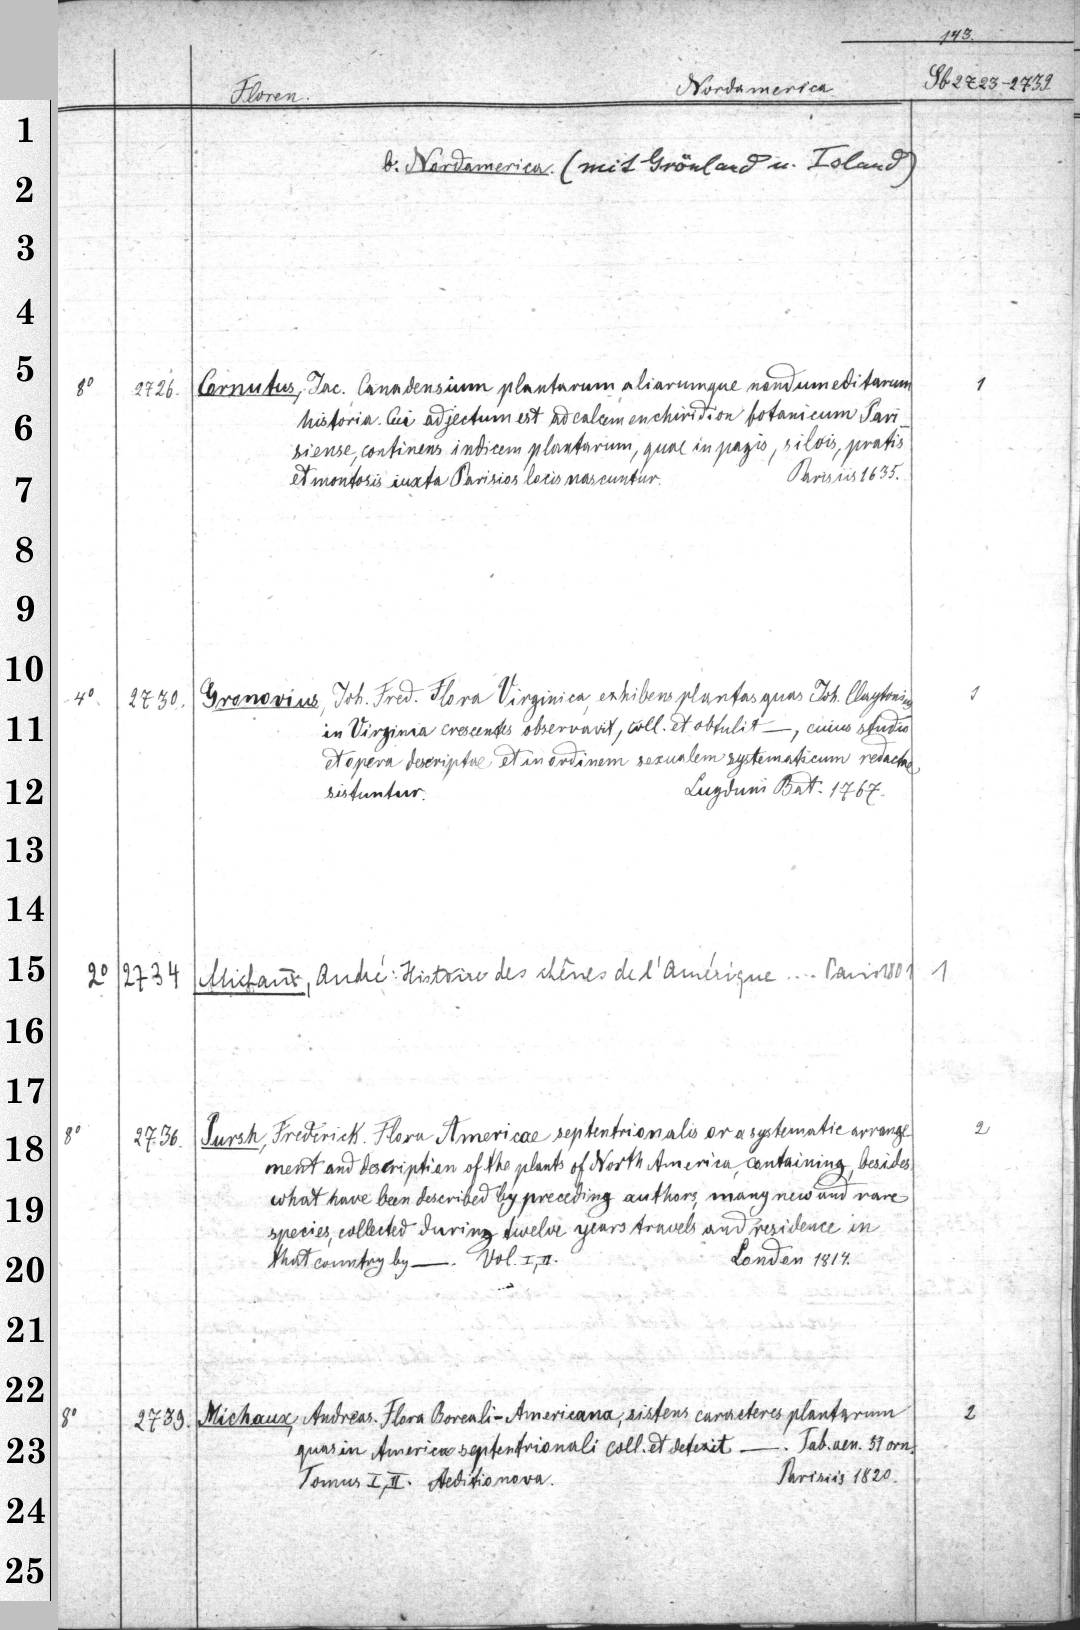 143.
Floren. Nordamerica Sb 2723-2739
b. Nordamerica. (mit Grönland u. Island)
8° 2726. Cornutus, Jac. Canadensium plantarum aliarumque nondum editarum 1
historia. Cui adjectum est ad calcem enchiridion botanicum Pari-
siense, continens indicem plantarum, quae in pagis, silvis, pratis
et montosis iuxta Parisios locis nascuntur. Parisiis 1635.
4° 2730. Gronovius, Joh. Fred. Flora Virginica, exhibens plantas quas Joh. Claytonius 1
in Virginia crescentes observavit, coll. et obtulit —, cuius studio
et opera descriptae et in ordinem sexualem systematicum redactae
sistuntur. Lugduni Bat. 1767.
2° 2734 Michaux, André: Histoire des chênes de l'Amérique .... Paris 1801 1
8° 2736. Pursh, Frederick. Flora Americae septentrionalis or a systematic arrange-
2
ment and description of the plants of North America, containing, besides
what have been described by preceding authors, many new and rare
species, collected during twelve years travels and residence in
that country by —. Vol. I, II. London 1814.
8° 2739. Michaux, Andreas. Flora Boreali-Americana, sistens caracteres plantarum 2
quas in America septentrionali coll. et detexit —. Tab. aen. 51 orn.
Tomus I, II. Aeditio nova. Parisiis 1820.
1
2
3
4
5
6
7
8
9
10
11
12
13
14
15
16
17
18
19
20
21
22
23
24
25